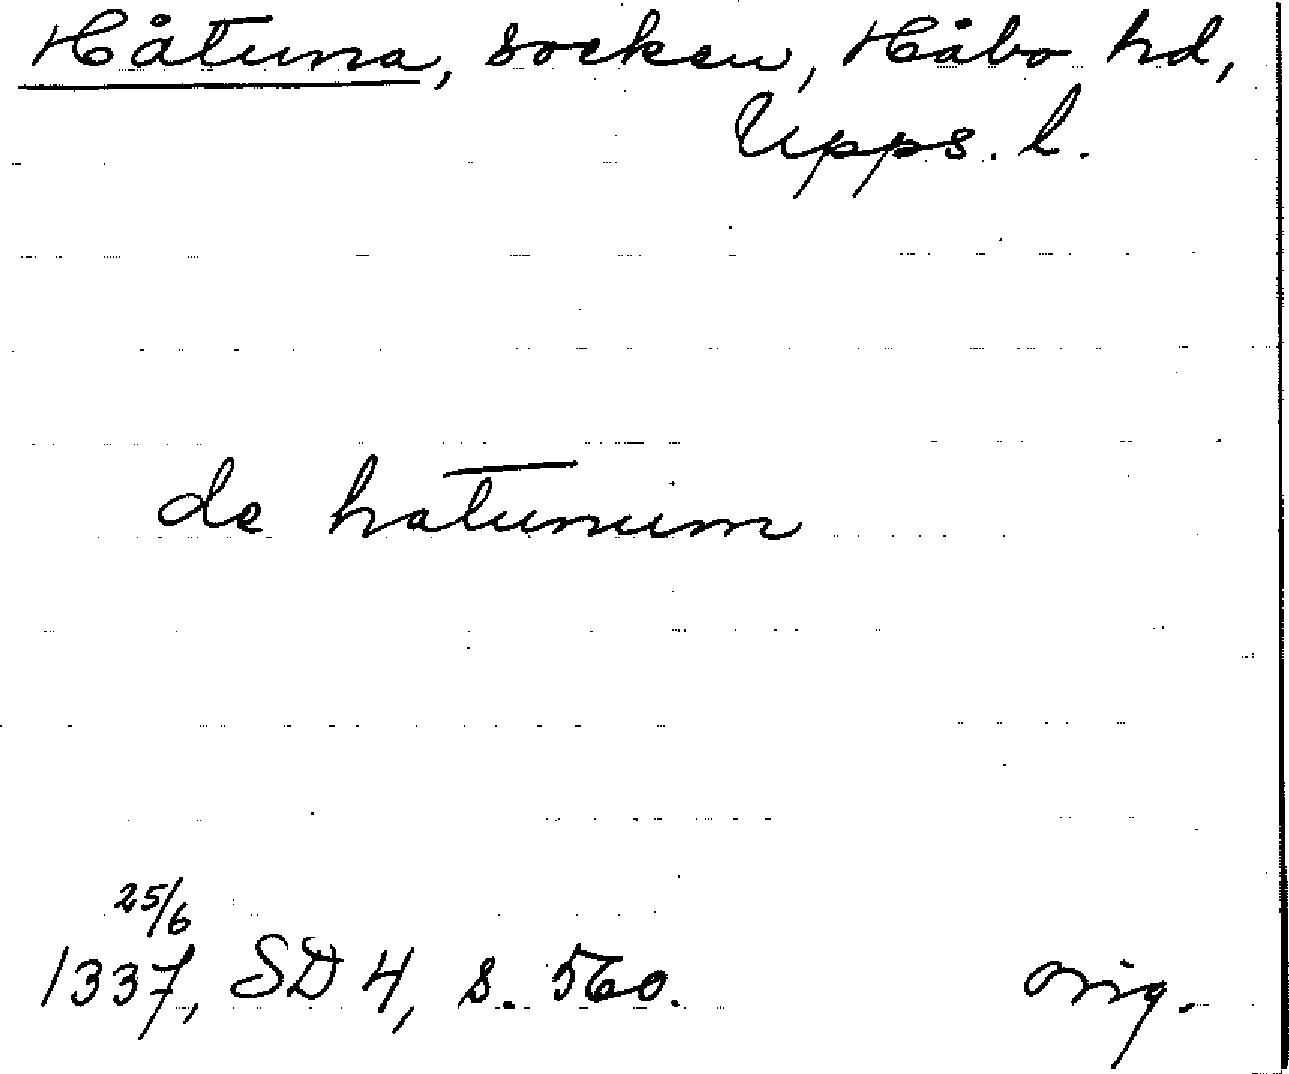 Håtuna, socken, Håbo hd,
Upps. l.
de hatunum
25/6
1337, SD 4, s. 560. orig.